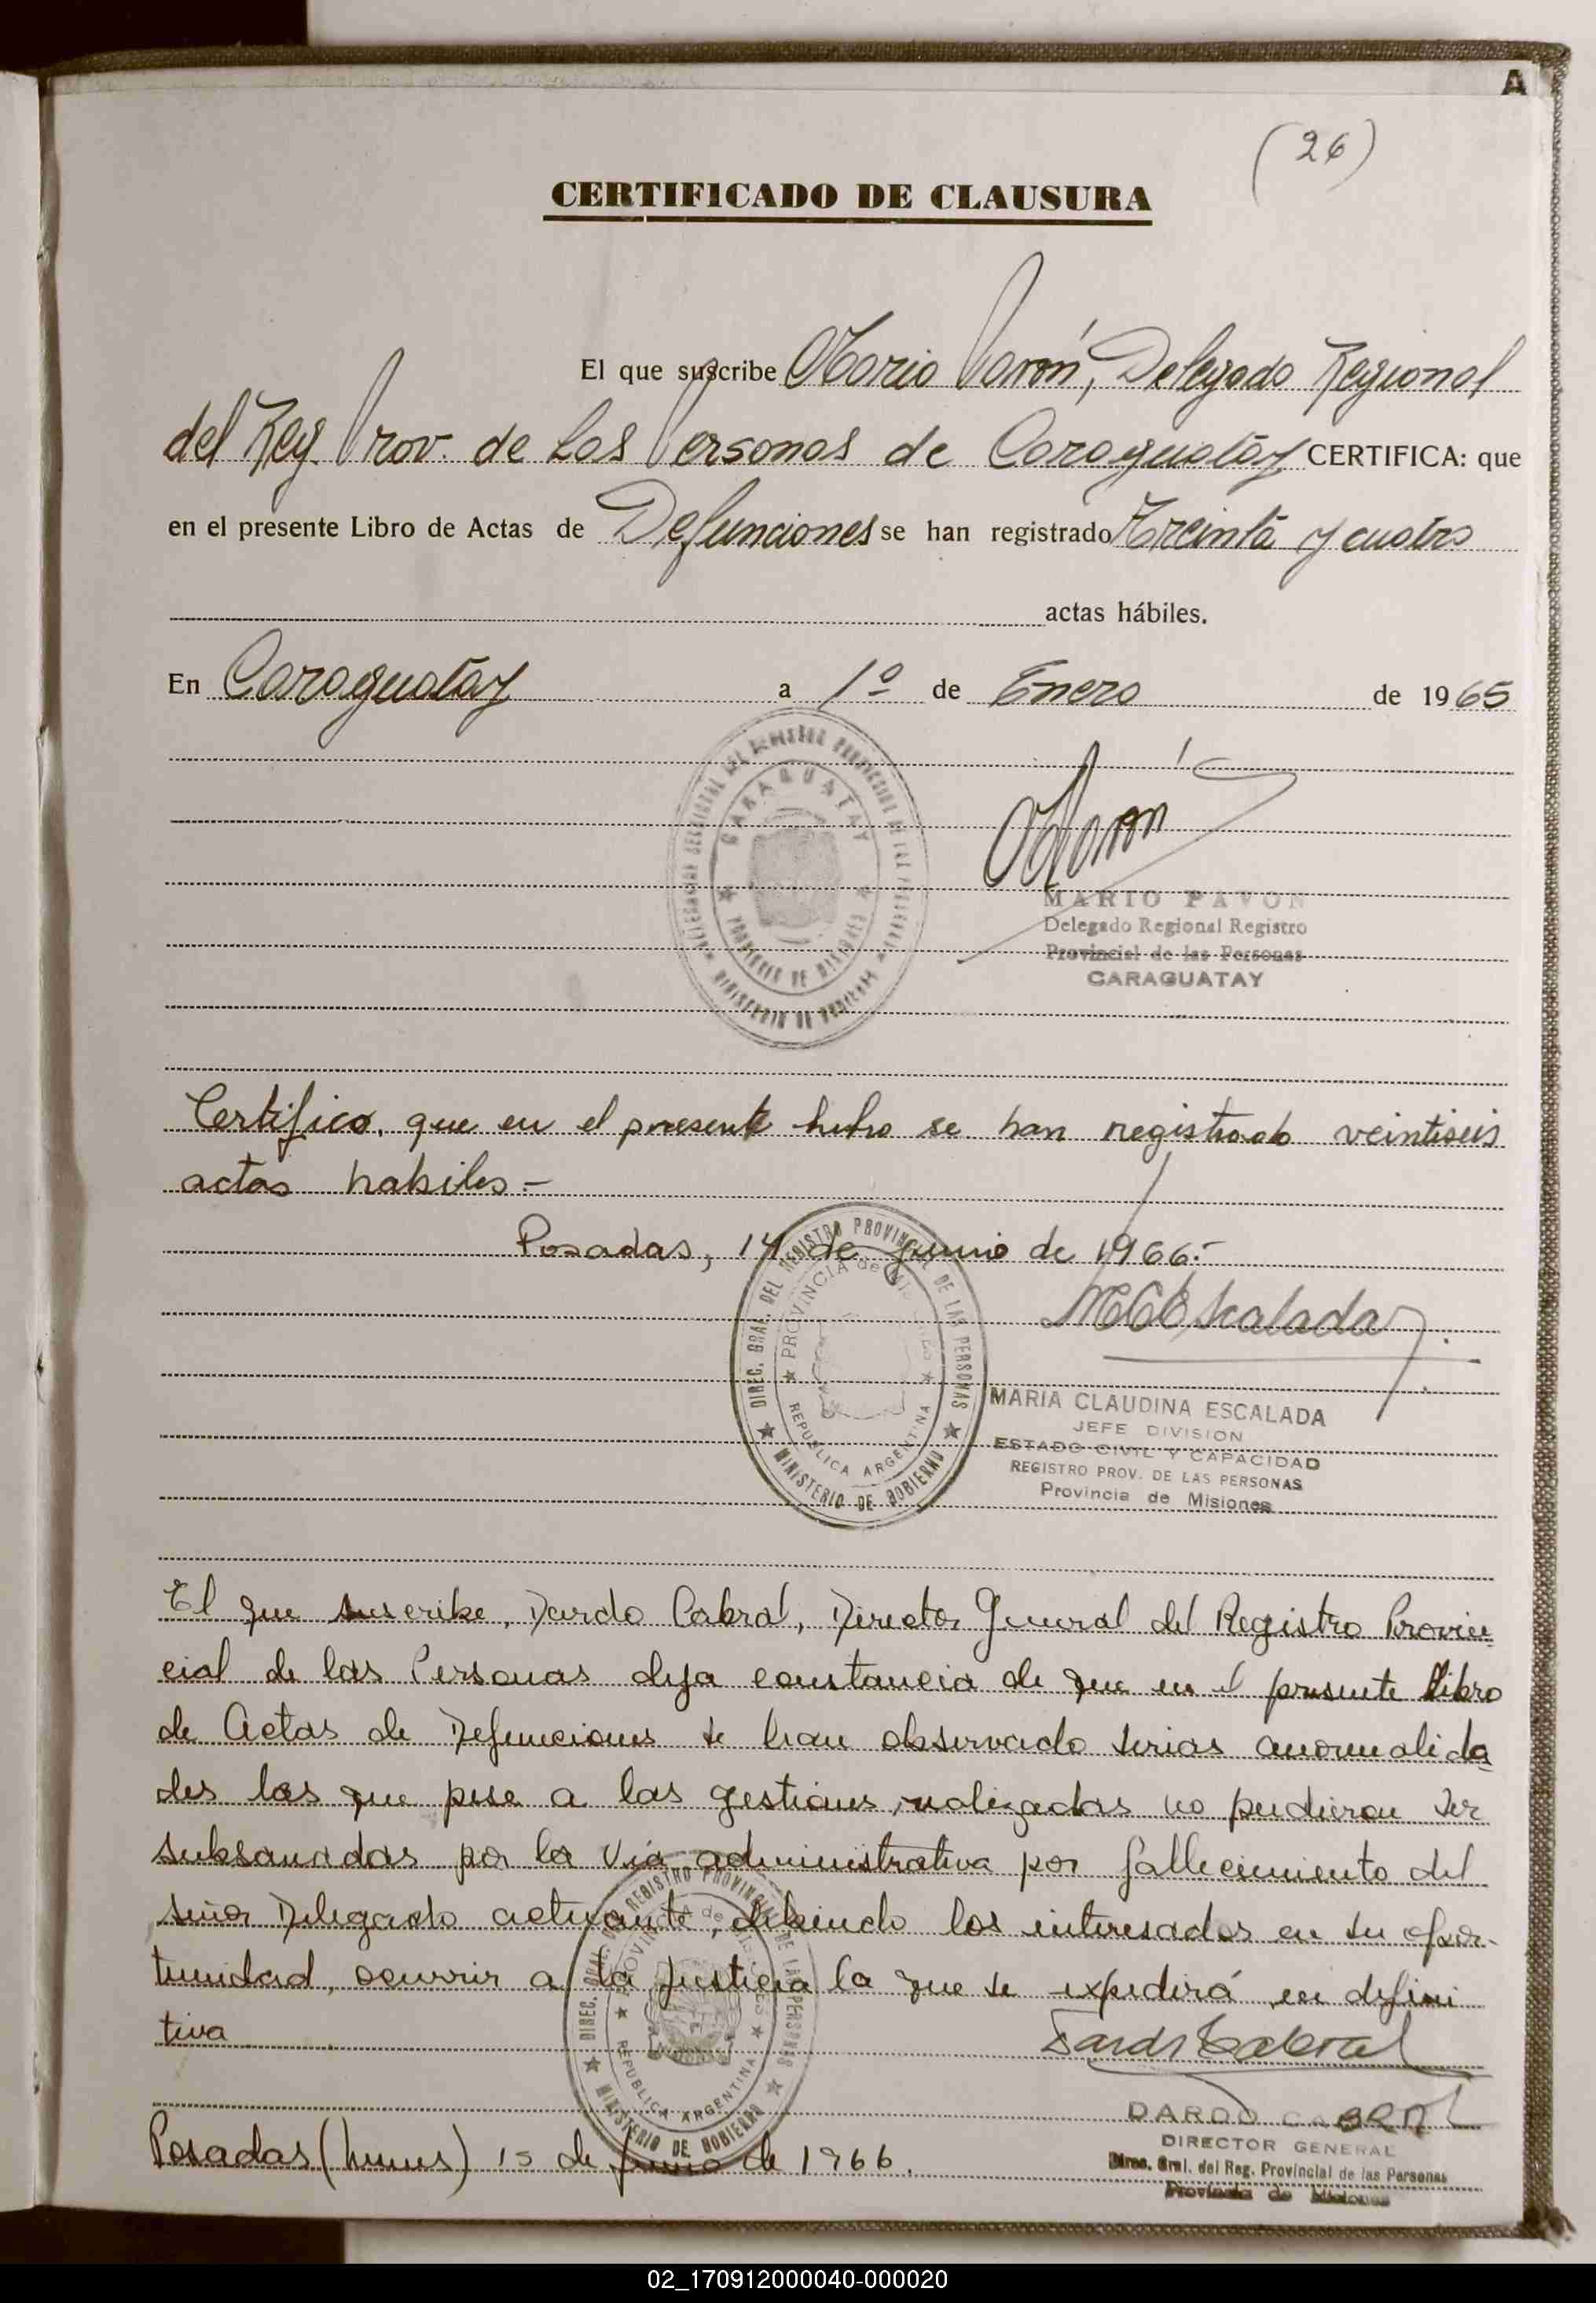 A
(26)
CERTIFICADO DE CLAUSURA
El que suscribe Mario Pavón, Delegado Regional
del Reg. Prov. de Las Personas de Caraguatay CERTIFICA: que
en el presente Libro de Actas de Defunciones se han registrado Treinta y cuatro
actas hábiles.
En Caraguatay a 1º de Enero de 1965
DELEGACION REGIONAL DEL REGISTRO PROVINCIAL DE LAS PERSONAS
CARAGUATAY
PROVINCIA DE MISIONES
MINISTERIO DE GOBIERNO
MARIO PAVON
Delegado Regional Registro
Provincial de las Personas
CARAGUATAY
Certifico, que en el presente libro se han registrado veintiseis
actas habiles.-
Posadas, 14 de junio de 1966.-
MCEscalada
DIREC. GRAL. DEL REGISTRO PROVINCIAL DE LAS PERSONAS
PROVINCIA de MISIONES
REPUBLICA ARGENTINA
MINISTERIO DE GOBIERNO
MARIA CLAUDINA ESCALADA
JEFE DIVISION
ESTADO CIVIL Y CAPACIDAD
REGISTRO PROV. DE LAS PERSONAS
Provincia de Misiones
El que suscribe, Dardo Cabral, Director General del Registro Provin
cial de las Personas deja constancia de que en el presente libro
de Actas de Defunciones se han observado serias anormalida
des las que pese a las gestiones realizadas no pudieron ser
subsanadas por la via administrativa por fallecimiento del
señor Delegado actuante, debiendo los interesados en su opor-
tunidad, ocurrir a la justicia la que se expedirá en defini
tiva
Dardo Cabral
DIREC. GRAL. DEL REGISTRO PROVINCIAL DE LAS PERSONAS
PROVINCIA de MISIONES
REPUBLICA ARGENTINA
MINISTERIO DE GOBIERNO
DARDO CABRAL
DIRECTOR GENERAL
Direc. Gral. del Reg. Provincial de las Personas
Provincia de Misiones
Posadas (Mnes) 15 de junio de 1966.
02_170912000040-000020